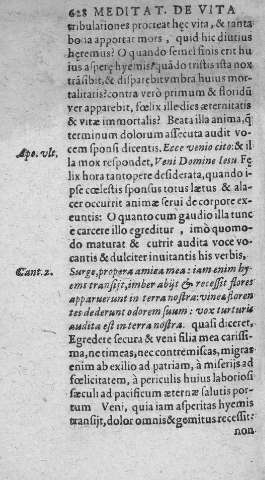 628 MEDITAT. DE VITA
tribulationes procreat hęc vita, & tanta
bona apportat mors, quid hic diutius
hęremus? O quando semel finis erit hu
ius asperę hyemis? quãdo tristis ista nox
trãsibit, & disparebit vmbra huius mor-
talitatis? contra verò primum & floridũ
ver apparebit, fœlix ille dies æternitatis
& vitæ immortalis? Beata illa anima, q̃
terminum dolorum assecuta audit vo-
cem sponsi dicentis, Ecce venio citò: & il
Apo. vlt.
la mox respondet, Veni Domine Iesu. Fę
lix hora tantopere desiderata, quando i-
pse cœlestis sponsus totus lætus & ala-
cer occurrit animæ servi de corpore ex-
euntis: O quanto cum gaudio illa tunc
è carcere illo egreditur, imò quomo-
do maturat & cutrir audita voce vo-
cantis & dulciter inuitantis his verbis,
Cant. 2.
Surge, propera amica mea: tam enim hy
ems transijt, imber abijt & recessit flores
apparuerunt in terra nostra: vineæ floren
tes dederunt odorem suum: vox turturis
audita est in terra nostra. quasi diceret,
Egredere secura & veni filia mea carissi-
ma, ne timeas, nec contremiscas, migras
enim ab exilio ad patriam, à miserijs ad
fœlicitatem, à periculis huius laboriosi
sæculi ad pacificum æternæ salutis por-
tum Veni, quia iam asperitas hyemis
transijt, dolor omnis & gemitus recessit:
non